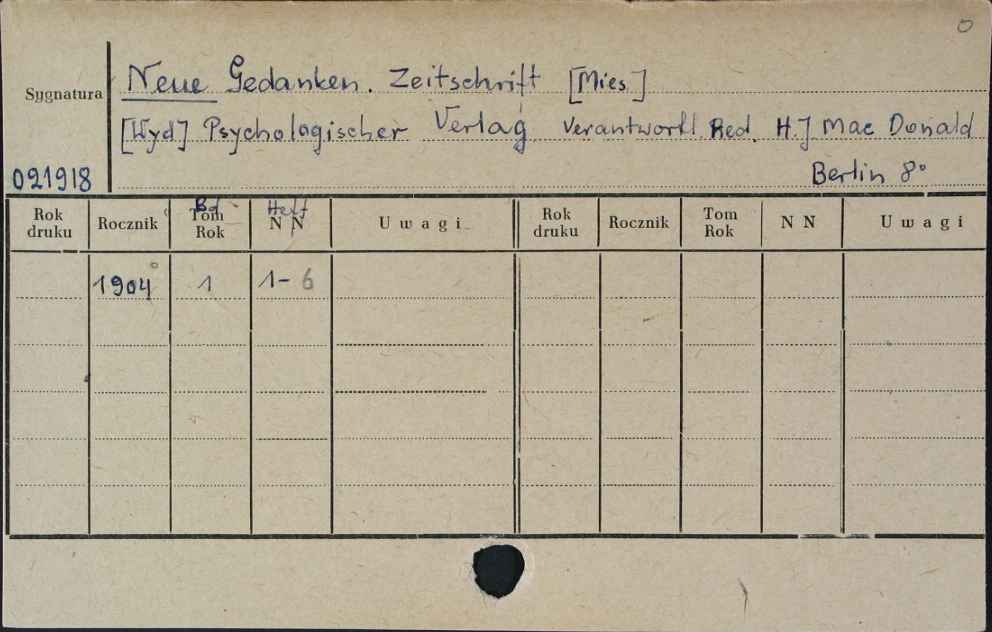 0
Sygnatura Neue Gedanken. Zeitschrift [Mies]
[Wyd] Psychologischer Verlag verantwortl. Red. H.J Mac Donald
021918 Berlin 8°
Bd. Heft
Rok druku Rocznik Tom Rok N N U w a g i Rok druku Rocznik Tom Rok N N U w a g i
1904 1 1-6